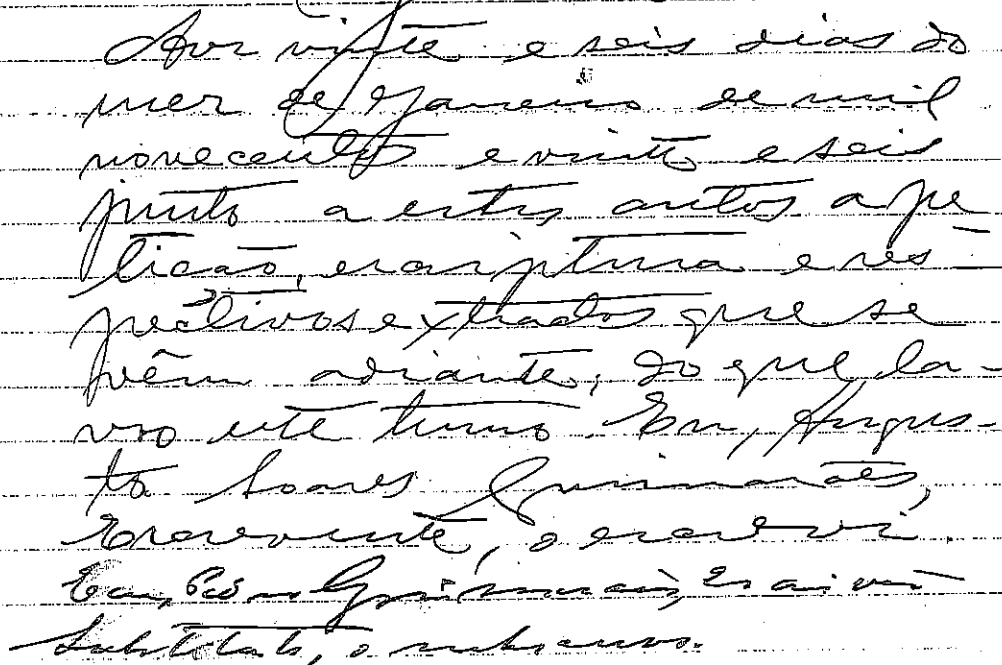 Aos vinte e seis dias do
mez de Janeiro de mil
novecentos e vinte e seis
junto a estes autos a pe
tição, escriptura e res-
pectivos extractos que se
vêm adiante, do que la-
vro este termo. Eu, Augus-
to Soares Guimarães,
Escrevente, o escrevi.
Eu, Guimarães, Escrivão
Substituto, o subscrevo.